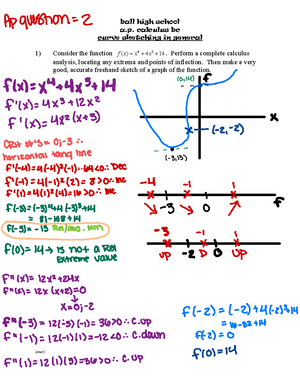 AP question = 2
ball high school
a.p. calculus bc
curve sketching in general
1) Consider the function f(x) = x⁴ + 4x³ + 14. Perform a complete calculus
analysis, locating any extrema and points of inflection. Then make a very
good, accurate freehand sketch of a graph of the function.
f(x) = x⁴ + 4x³ + 14
f'(x) = 4x³ + 12x²
f'(x) = 4x² (x+3)
(0,14)
f
x
(-2,-2)
(-3,13)
Crit #'s = 0; -3 ∴
horizontal tang line
f'(-4) = 4(-4)²(-1) -64<0 ∴ Dec
f'(-1) = 4(-1)²(2) = 8 > 0 ∴ Inc
f'(1) = 4(1)²(4) = 16 > 0 ∴ Inc
f(-3) = (-3)⁴ + 4(-3)³ + 14
= 81 - 108 + 14
f(-3) = -13 Rel/abs. min
f(0) = 14 → is not a Rel
Extreme value
-4 -1 1
-3 0
f
-3 -1 1
UP -2 D 0 UP
f''(x) = 12x² + 24x
f''(x) = 12x (x+2) = 0
x = 0; -2
f''(-3) = 12(-3)(-1) = 36 > 0 ∴ c.up
f''(-1) = 12(-1)(1) = -12 < 0 ∴ c.down
f''(1) = 12(1)(3) = 36 > 0 ∴ c.up
f(-2) = (-2)⁴ + 4(-2)³ + 14
= 16 - 32 + 14
f(-2) = 0
f(0) = 14